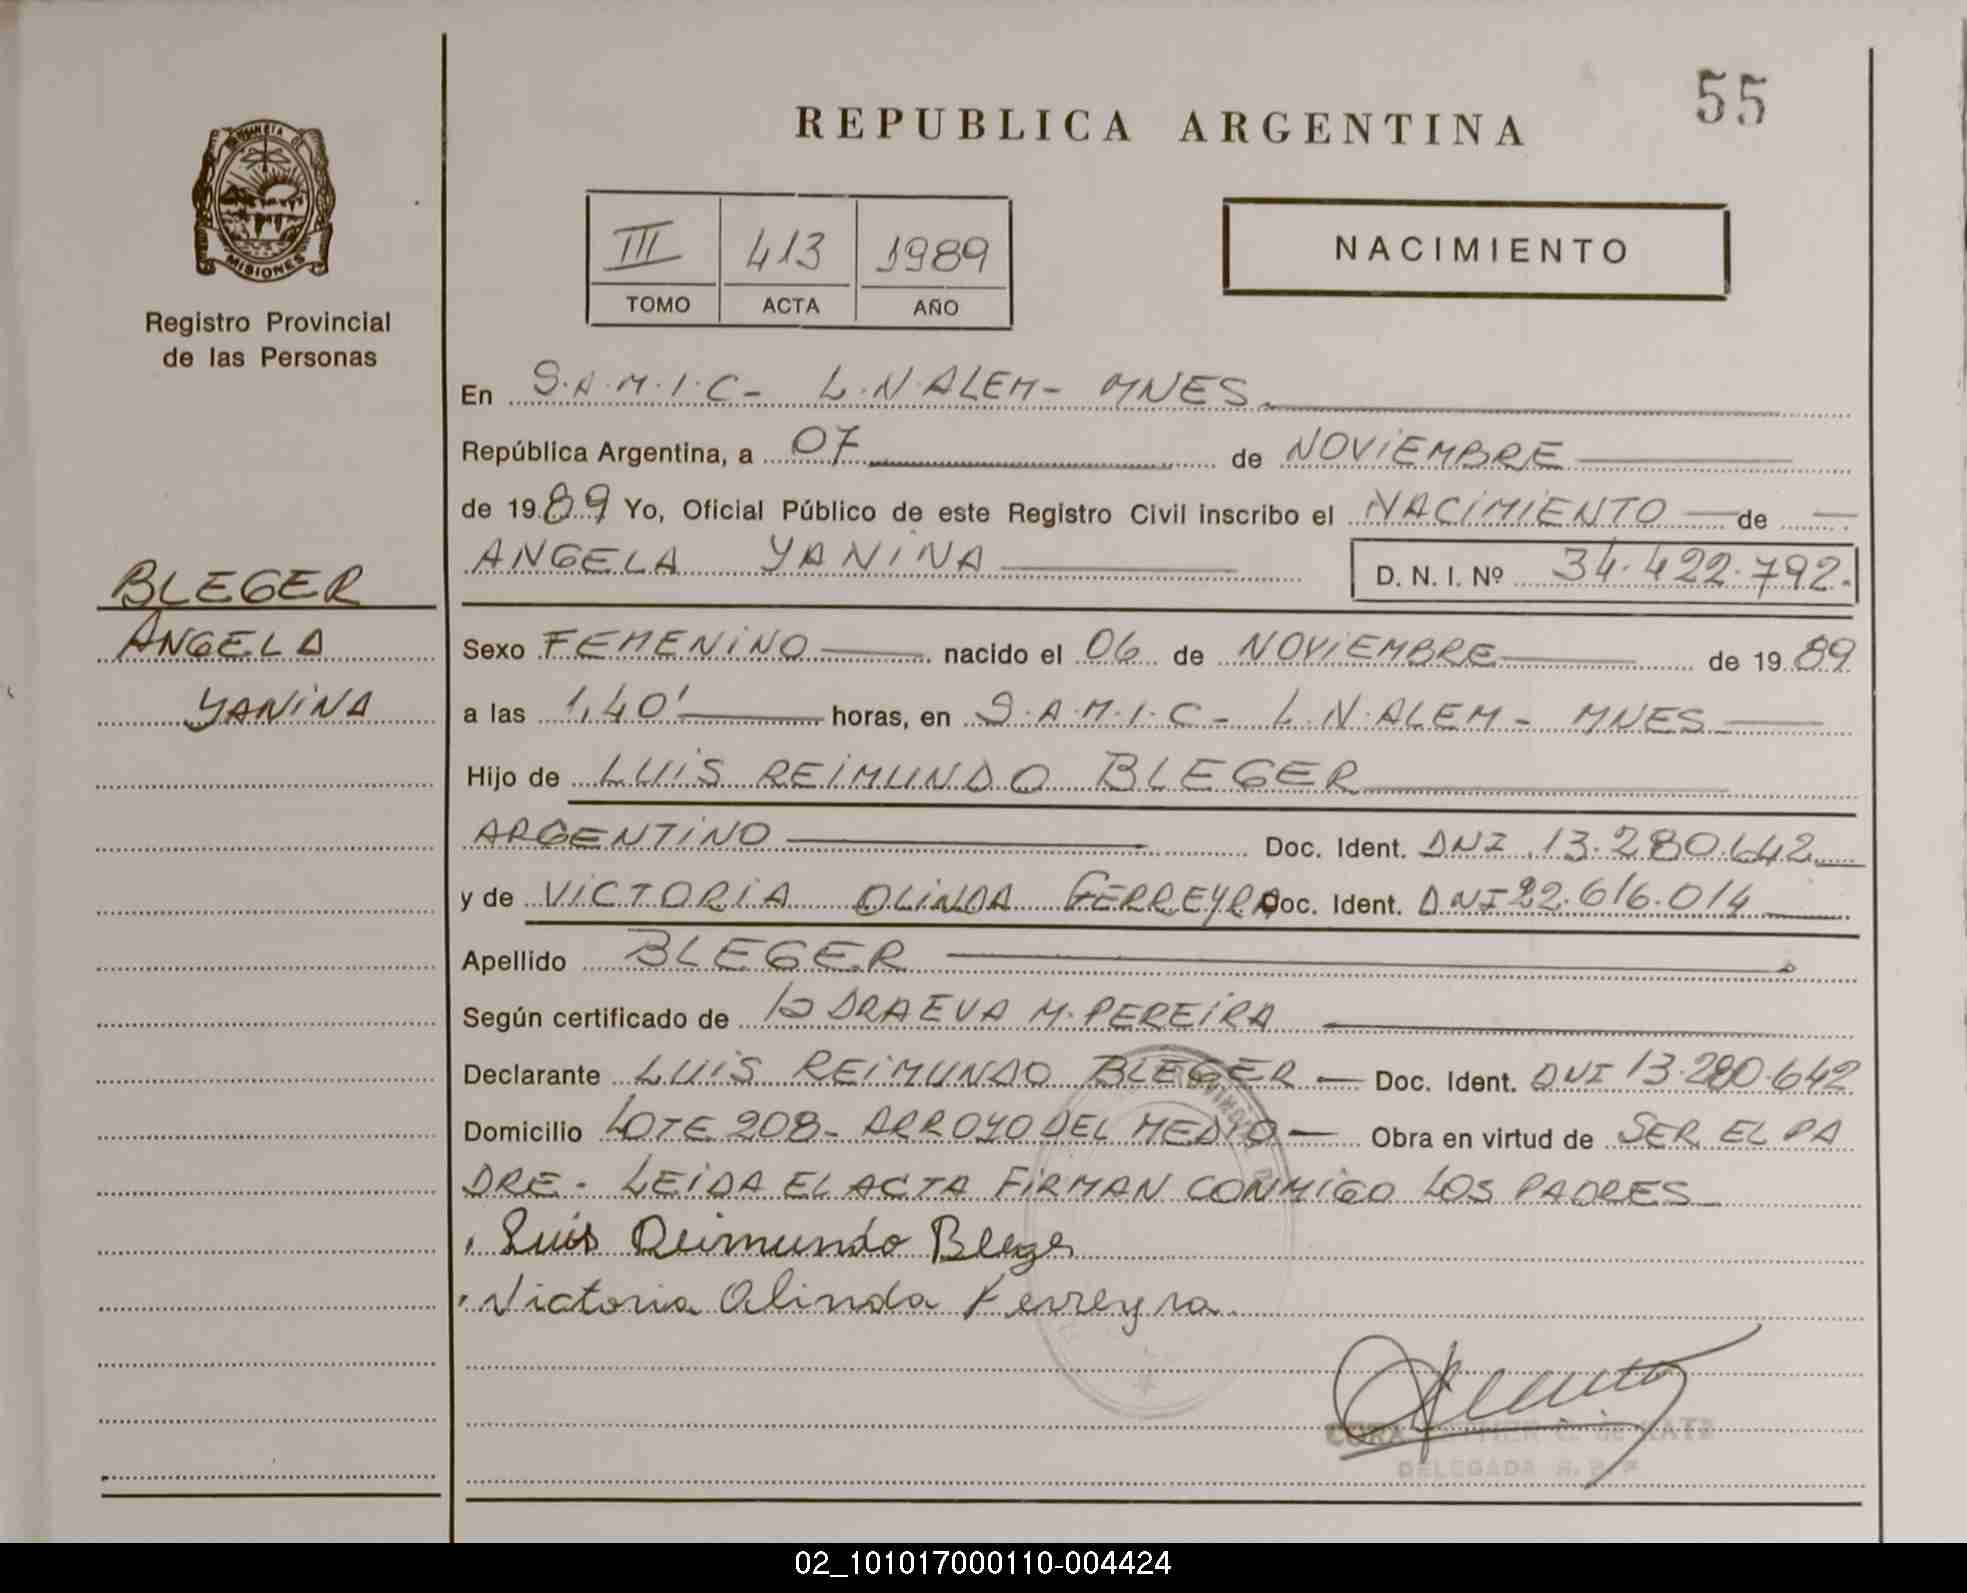 55
REPUBLICA ARGENTINA
III 413 1989
TOMO ACTA AÑO
NACIMIENTO
MISIONES
Registro Provincial
de las Personas
BLEGER
ANGELA
YANINA
En S.A.M.I.C- L.N.ALEM- MNES
República Argentina, a 07 de NOVIEMBRE
de 1989 Yo, Oficial Público de este Registro Civil inscribo el NACIMIENTO de
ANGELA YANINA D. N. I. Nº 34.422.792.
Sexo FEMENINO nacido el 06 de NOVIEMBRE de 1989
a las 1,40' horas, en S.A.M.I.C- L.N.ALEM- MNES
Hijo de LUIS REIMUNDO BLEGER
ARGENTINO Doc. Ident. DNI 13.280.642
y de VICTORIA OLINDA FERREYRA Doc. Ident. DNI 22.616.014
Apellido BLEGER
Según certificado de la DRA EVA M. PEREIRA
Declarante LUIS REIMUNDO BLEGER - Doc. Ident. DNI 13.280.642
Domicilio LOTE 208- ARROYO DEL MEDIO - Obra en virtud de SER EL PA
DRE. LEIDA EL ACTA FIRMAN CONMIGO LOS PADRES
Luis Reimundo Bleger
Victoria Olinda Ferreyra
C. de KATZ
DELEGADA R.P.P
02_101017000110-004424